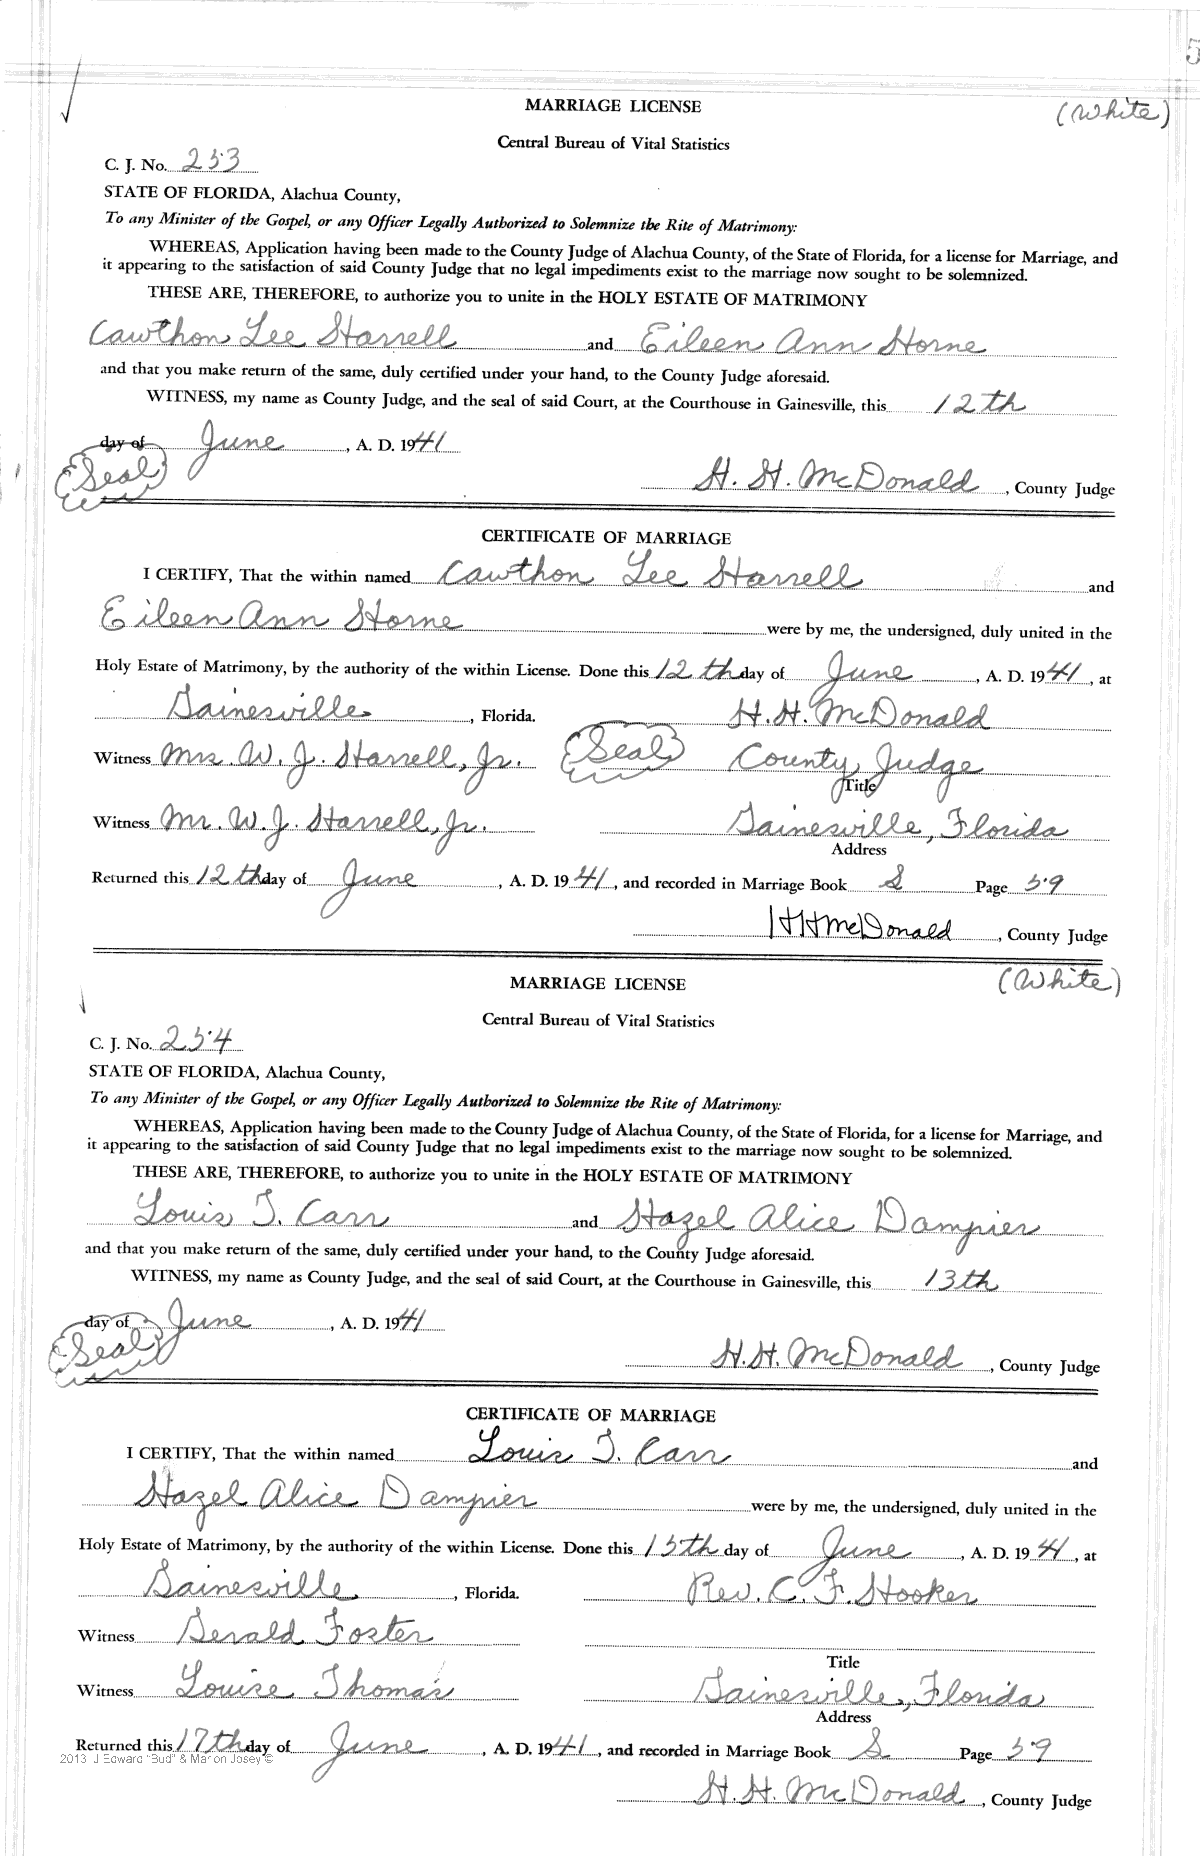 5
MARRIAGE LICENSE
(White)
Central Bureau of Vital Statistics
C. J. No. 253
STATE OF FLORIDA, Alachua County,
To any Minister of the Gospel, or any Officer Legally Authorized to Solemnize the Rite of Matrimony:
WHEREAS, Application having been made to the County Judge of Alachua County, of the State of Florida, for a license for Marriage, and
it appearing to the satisfaction of said County Judge that no legal impediments exist to the marriage now sought to be solemnized.
THESE ARE, THEREFORE, to authorize you to unite in the HOLY ESTATE OF MATRIMONY
Cawthon Lee Harrell and Eileen Ann Horne
and that you make return of the same, duly certified under your hand, to the County Judge aforesaid.
WITNESS, my name as County Judge, and the seal of said Court, at the Courthouse in Gainesville, this 12th
day of June, A. D. 1941
(Seal)
H. H. McDonald, County Judge
CERTIFICATE OF MARRIAGE
I CERTIFY, That the within named Cawthon Lee Harrell and
Eileen Ann Horne were by me, the undersigned, duly united in the
Holy Estate of Matrimony, by the authority of the within License. Done this 12th day of June, A. D. 1941, at
Gainesville, Florida. H. H. McDonald
Witness Mrs. W. J. Harrell, Jr. (Seal) County Judge
Title
Witness Mr. W. J. Harrell, Jr. Gainesville, Florida
Address
Returned this 12th day of June, A. D. 1941, and recorded in Marriage Book S Page 59
HHMcDonald, County Judge
MARRIAGE LICENSE
(White)
Central Bureau of Vital Statistics
C. J. No. 254
STATE OF FLORIDA, Alachua County,
To any Minister of the Gospel, or any Officer Legally Authorized to Solemnize the Rite of Matrimony:
WHEREAS, Application having been made to the County Judge of Alachua County, of the State of Florida, for a license for Marriage, and
it appearing to the satisfaction of said County Judge that no legal impediments exist to the marriage now sought to be solemnized.
THESE ARE, THEREFORE, to authorize you to unite in the HOLY ESTATE OF MATRIMONY
Louis T. Carr and Hazel Alice Dampier
and that you make return of the same, duly certified under your hand, to the County Judge aforesaid.
WITNESS, my name as County Judge, and the seal of said Court, at the Courthouse in Gainesville, this 13th
day of June, A. D. 1941
(Seal)
H. H. McDonald, County Judge
CERTIFICATE OF MARRIAGE
I CERTIFY, That the within named Louis T. Carr and
Hazel Alice Dampier were by me, the undersigned, duly united in the
Holy Estate of Matrimony, by the authority of the within License. Done this 15th day of June, A. D. 1941, at
Gainesville, Florida. Rev. C. F. Hooker
Witness Gerald Foster
Title
Witness Louise Thomas Gainesville, Florida
Address
Returned this 17th day of June, A. D. 1941, and recorded in Marriage Book S Page 59
2013 J Edward "Bud" & Marion Josey ©
H. H. McDonald, County Judge